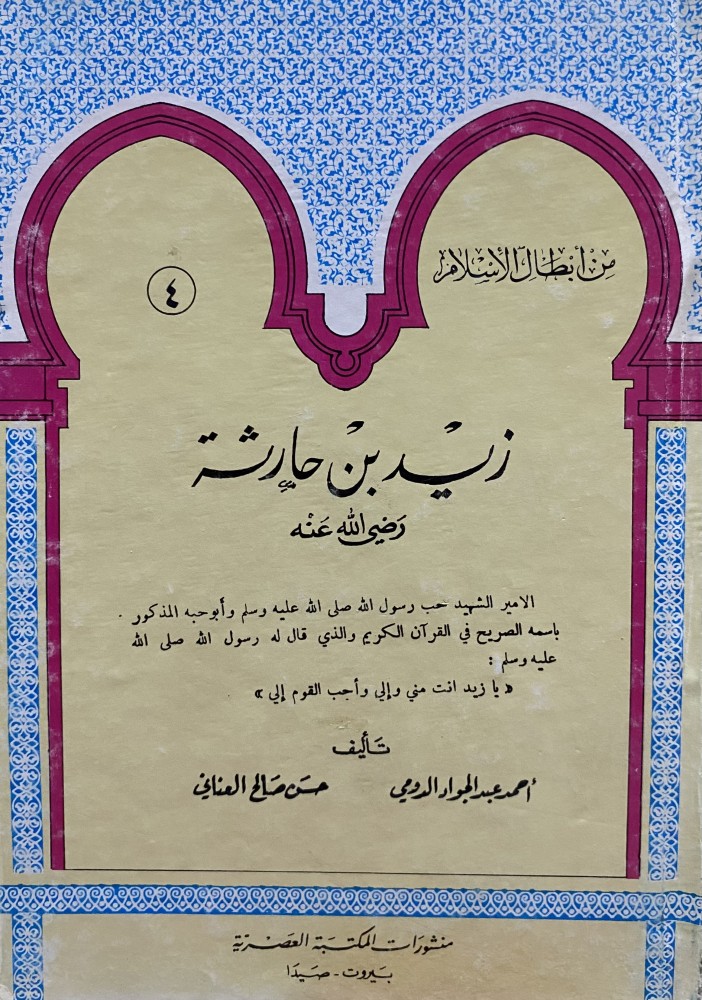 من أبطال الإسلام
٤
زيد بن حارثة
رضي الله عنه
الامير الشهيد حب رسول الله صلى الله عليه وسلم وأبوحبه المذكور .
باسمه الصريح في القرآن الكريم والذي قال له رسول الله صلى الله
عليه وسلم :
« يا زيد انت مني وإلي وأحب القوم إلي »
تأليف
أحمد عبد الجواد الدومي حسن صالح العناني
منشورات المكتبة العصرية
بيروت - صيدا